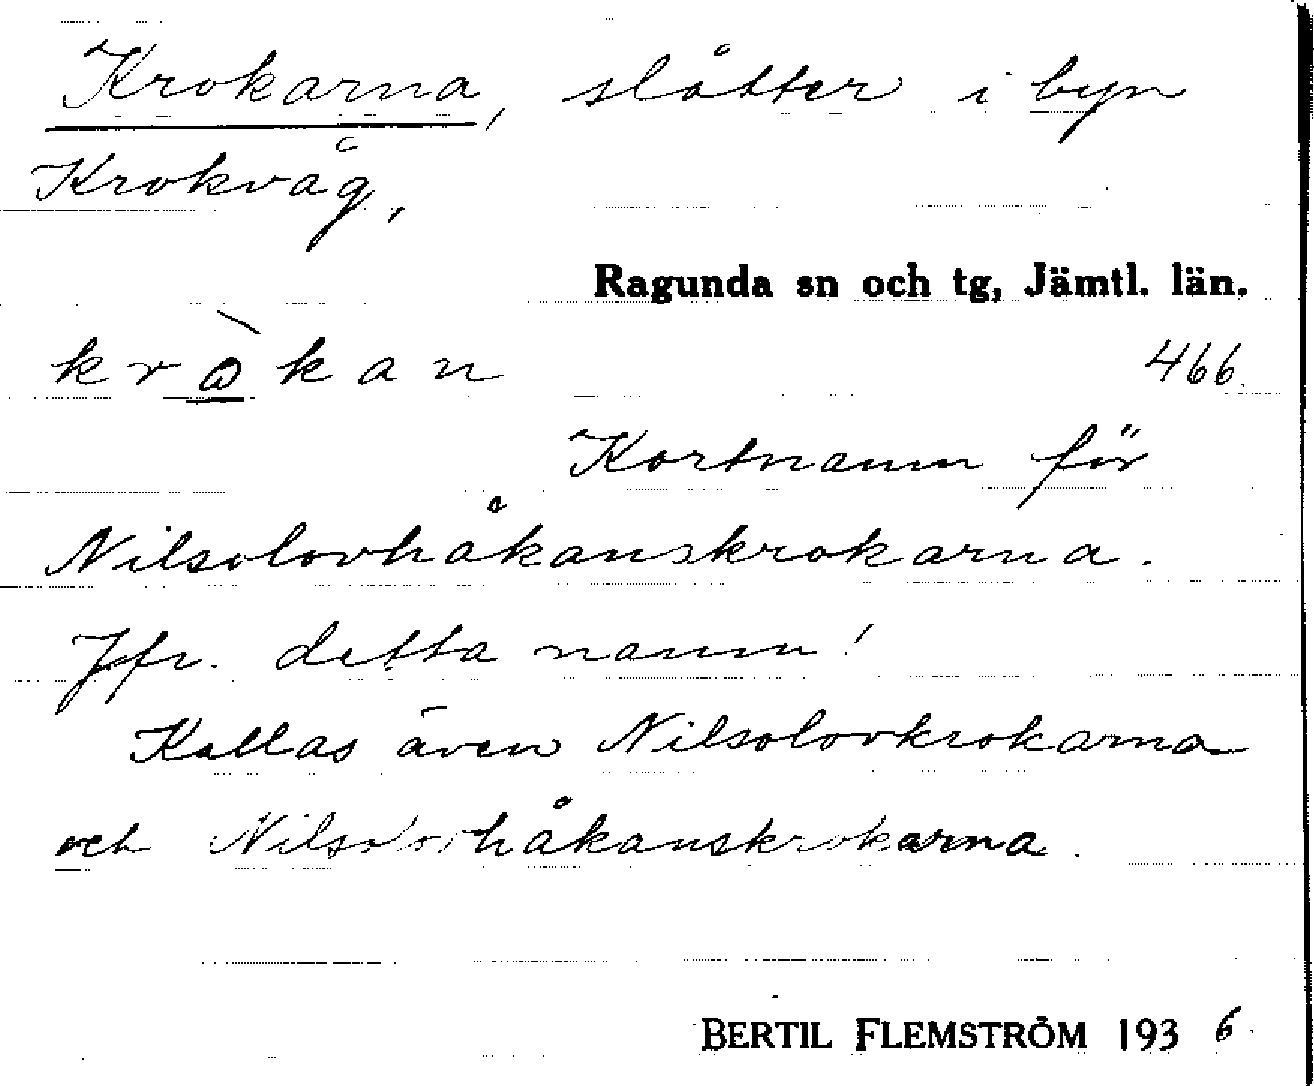 Krokarna, slåtter i byn
Krokvåg,
Ragunda sn och tg, Jämtl. län.
krὼkan 466
Kortnamn för
Nilsolovhåkanskrokarna.
Jfr. detta namn!
Kallas även Nilsolovkrokarna
och Nilsolovhåkanskrokarna.
BERTIL FLEMSTRÖM 1936